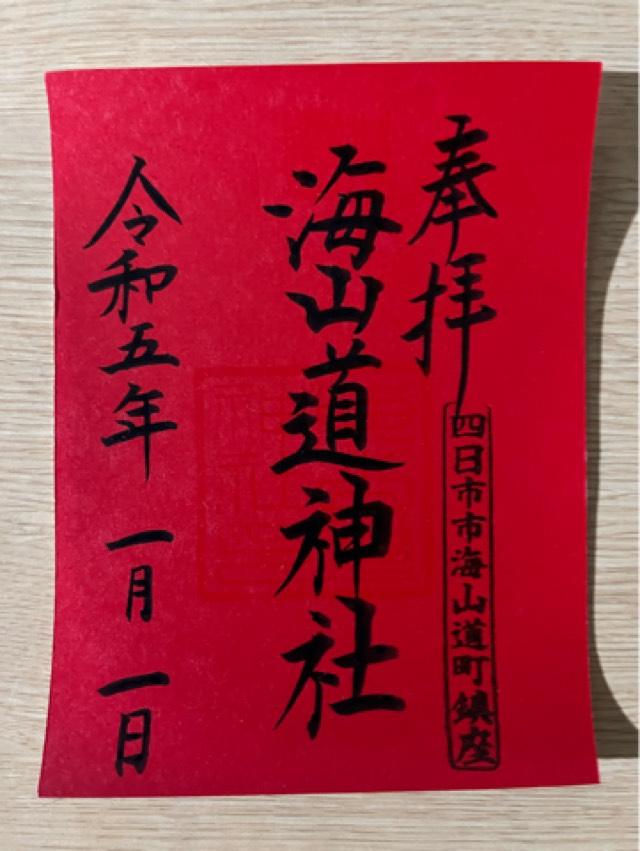 奉拝
四日市市海山道町鎮座
海山道神社
令和五年 一月 一日